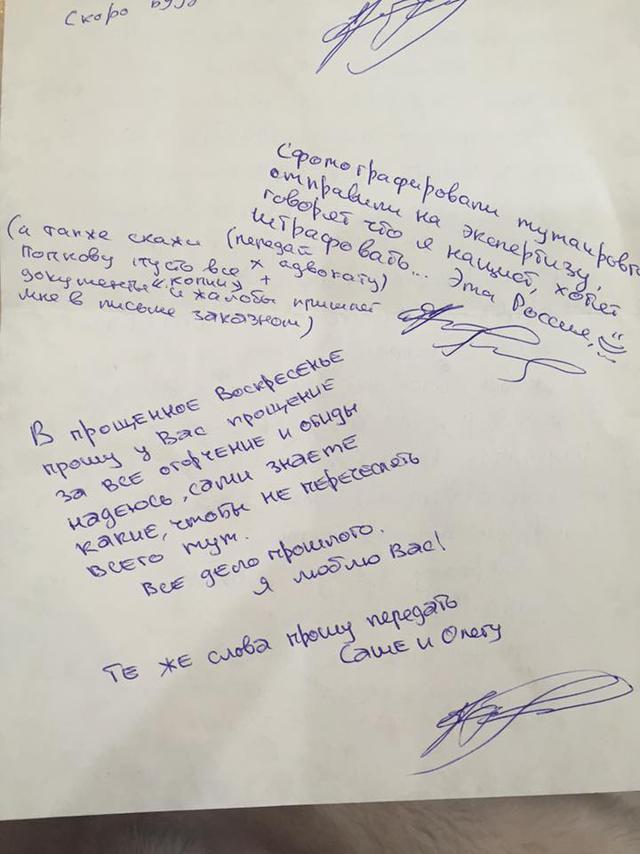 Скоро буду
Сфотографировали
отправили на экспертизу,
говорят что я нацист, хотят
штрафовать... Эта Россия,
(а также скажи (передай
Попкову пусто все × адвокату)
документы копии +
и жалобы пришлет
мне в письме заказном)
В прощенное Воскресенье
прошу у Вас прощение
за все огорчение и обиды
надеюсь, сами знаете
какие, чтобы не переческять
всего тут.
Все дело прошлого.
Я люблю Вас!
Те же слова прошу передать
Саше и Олегу